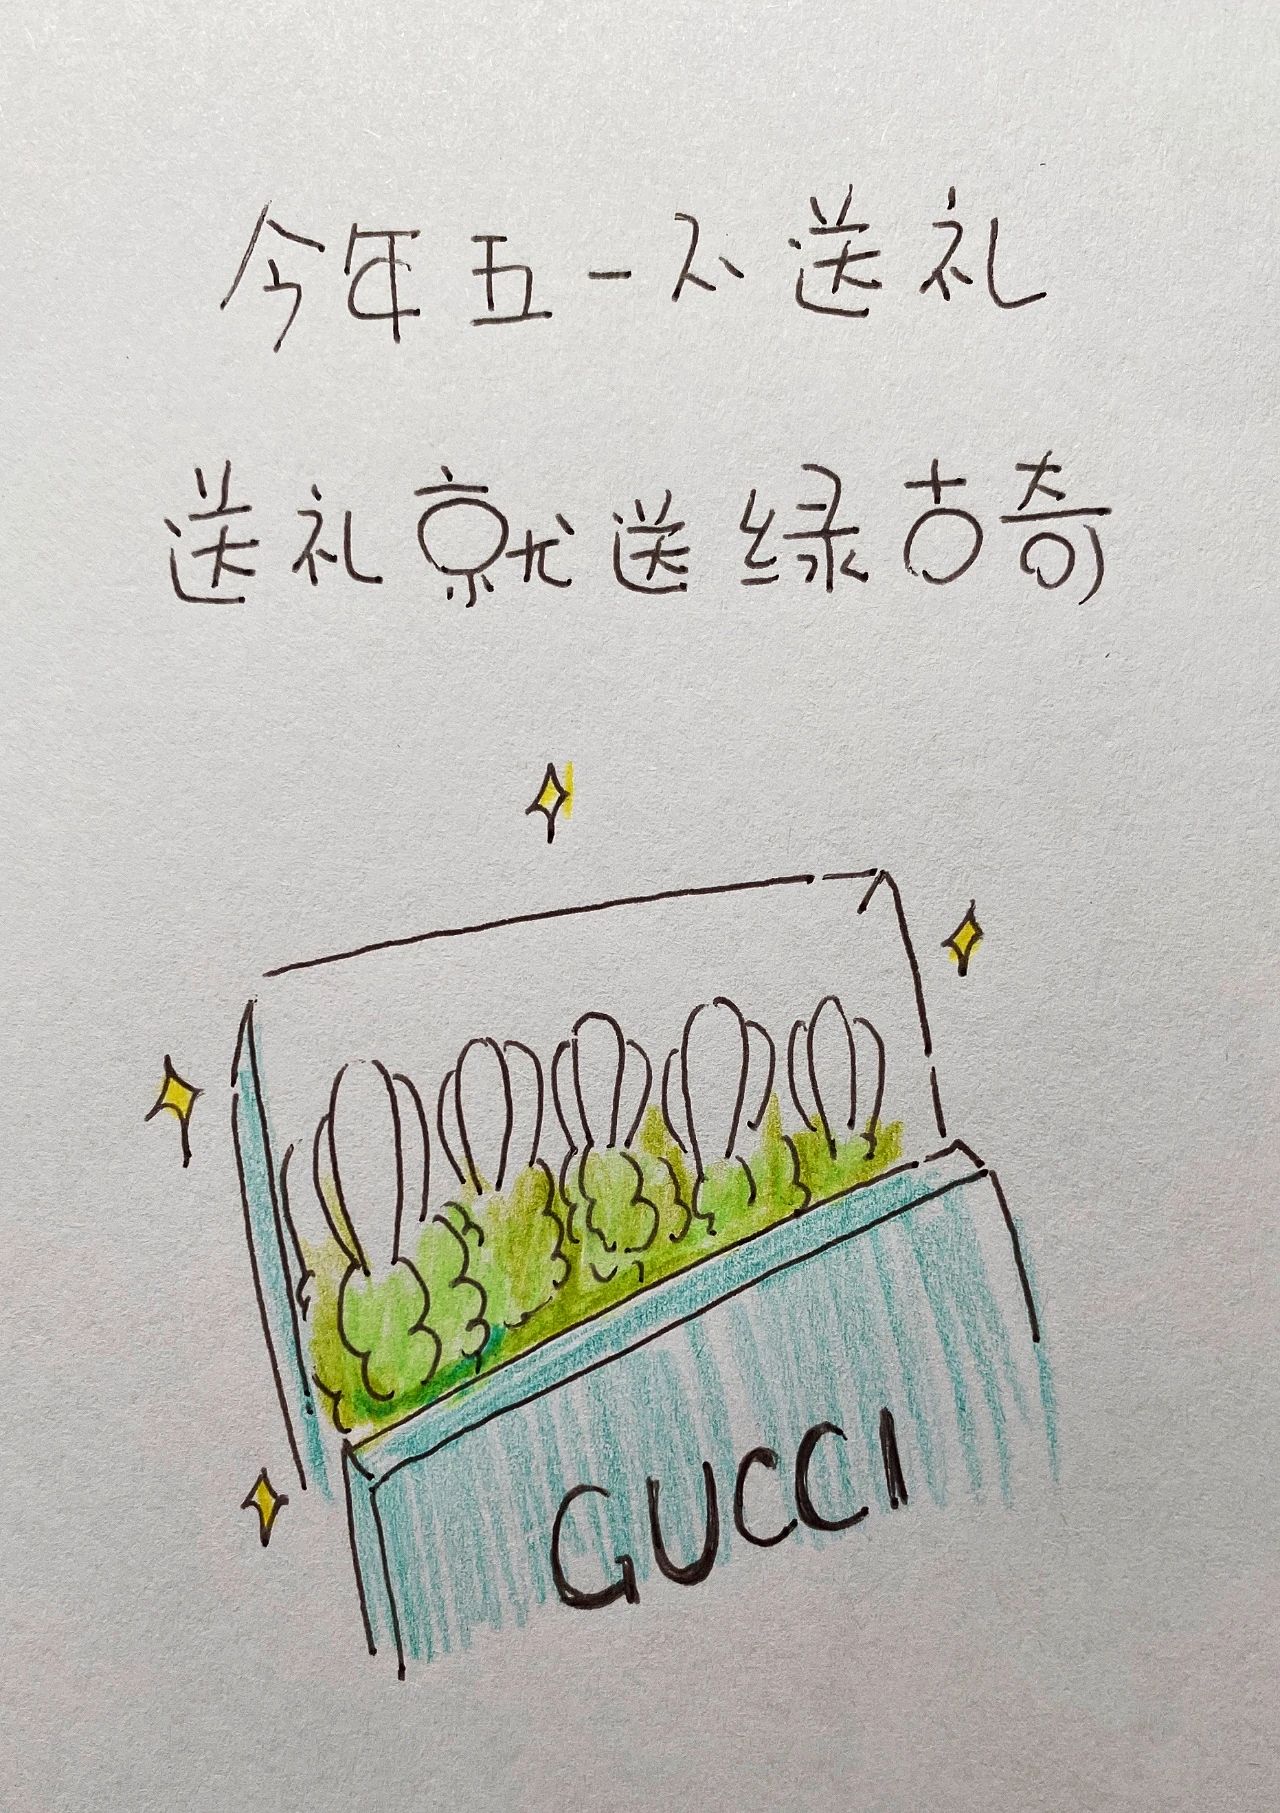 今年五一不送礼
送礼就送绿古奇
GUCCI